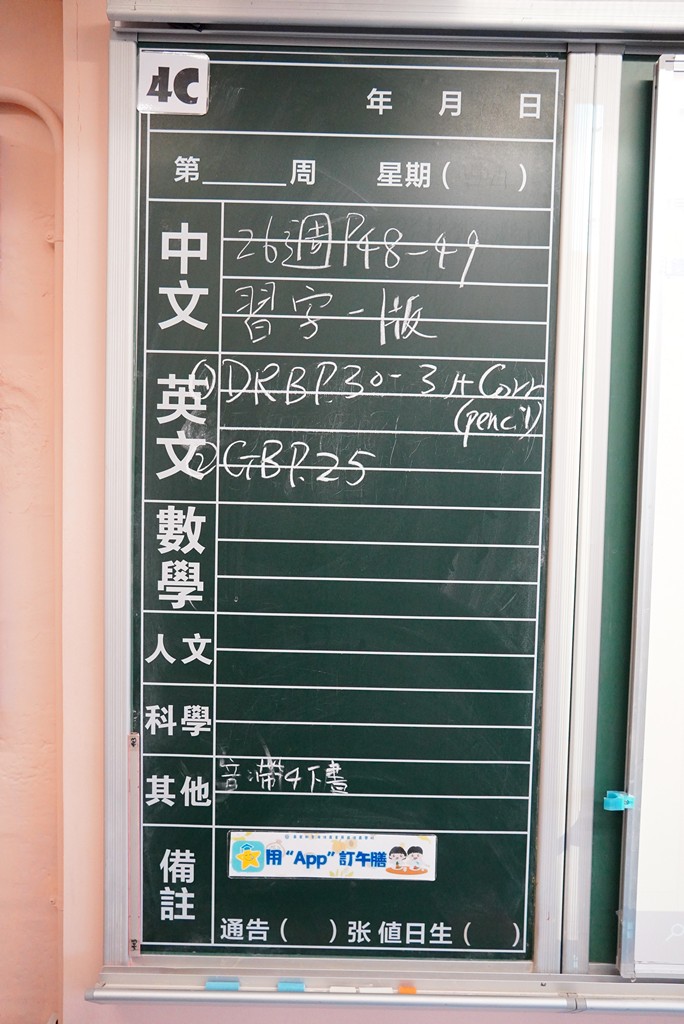 4C
年 月 日
第______周 星期( )
中文
26週 P.48-49
習字一版
英文
① DRB P.30-31 + Corr
(pencil)
② GB P.25
數學
人文
科學
其他
音:帶4下書
備註
用“App”訂午膳
通告( )张 值日生( )